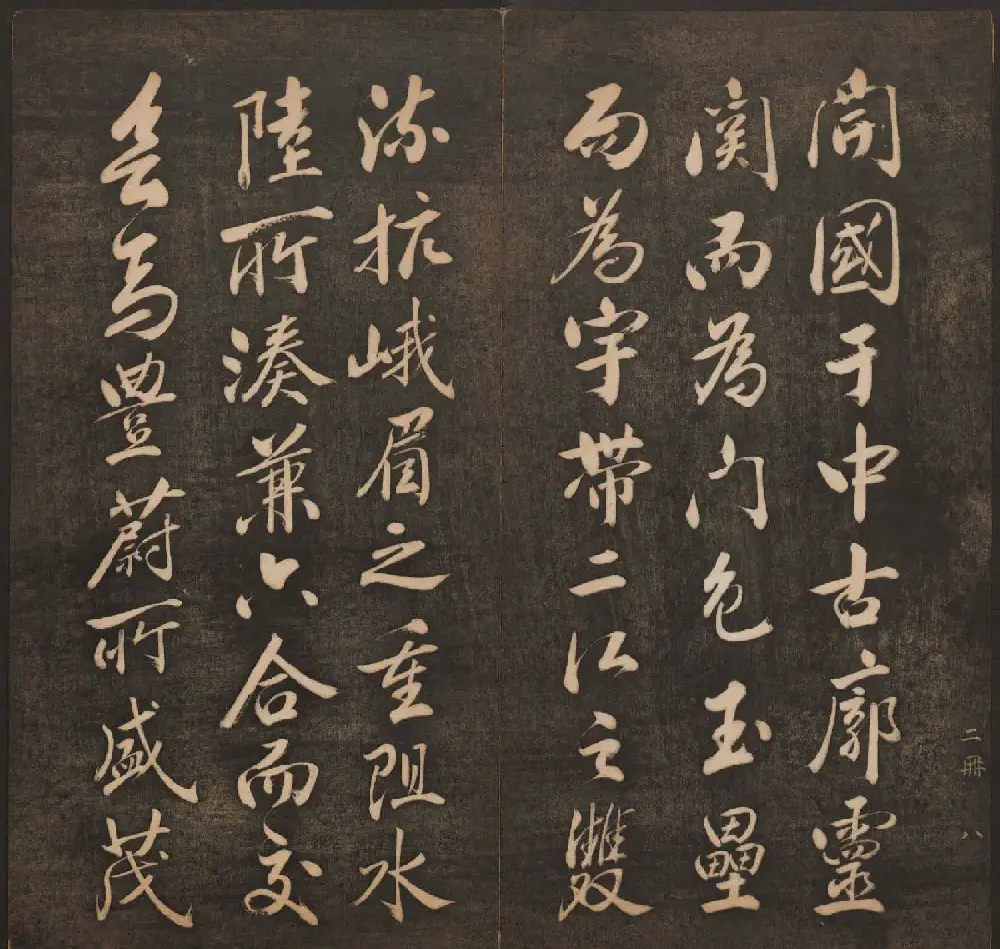 開國于中古廓靈
関而為門包玉壘
而為宇帶二江之雙
流抗峨眉之重阻水
陸所湊兼六合而交
會焉豊蔚所盛茂
二冊 八